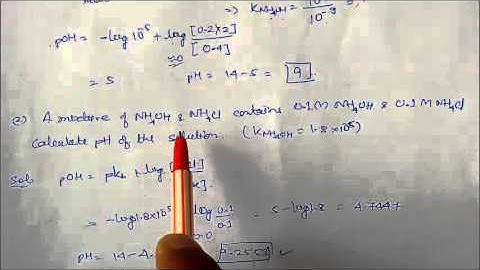 ⇒ K NH4OH = 10
10⁻⁹
pOH = -log 10⁻⁵ + log [0.2×2]
[0.4]
= 5 pH = 14-5 = 9.
(2) A mixture of NH4OH & NH4Cl contains 0.1 M NH4OH & 0.1 M NH4Cl
Calculate pH of the solution. (K NH4OH = 1.8×10⁻⁵)
Sol pOH = pKb + log
= -log 1.8×10⁻⁵ log 0.1/0.1 = 5-log 1.8 = 4.7447
pH = 14-4.